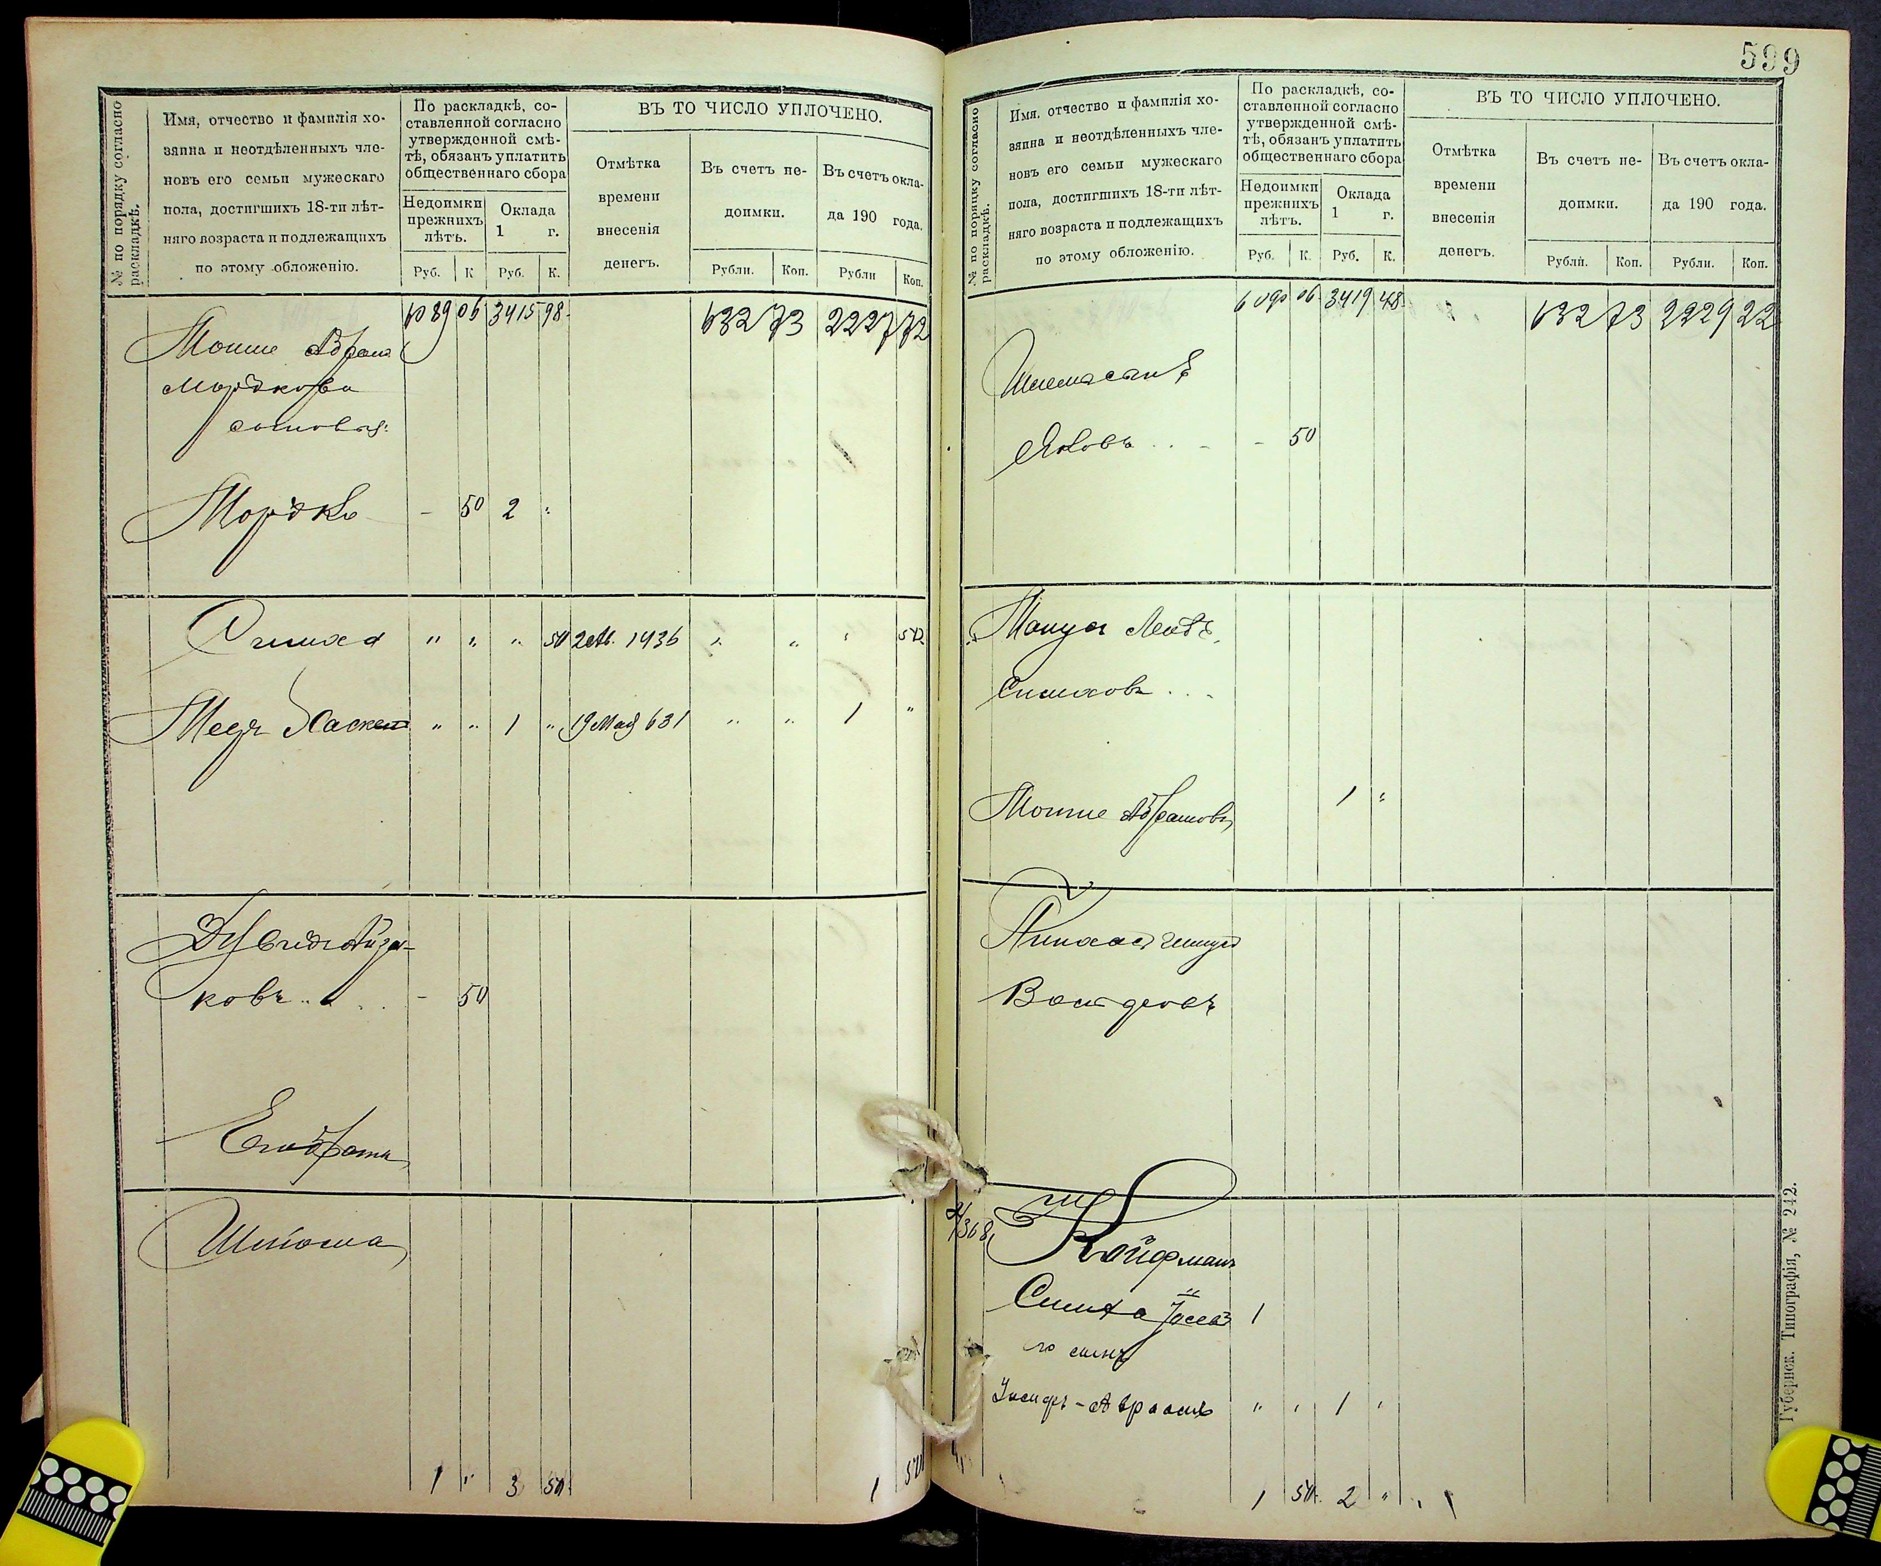 599
№ по порядку согласно раскладкѣ.
Имя, отчество и фамилія хо-
зяина и неотдѣленныхъ чле-
новъ его семьи мужескаго
пола, достигшихъ 18-ти лѣт-
няго возраста и подлежащихъ
по этому обложенію.
По раскладкѣ, со-
ставленной согласно
утвержденной смѣ-
тѣ, обязанъ уплатить
общественнаго сбора
Недоимки
прежнихъ
лѣтъ.
Оклада
1 г.
Руб. К Руб. К.
ВЪ ТО ЧИСЛО УПЛОЧЕНО.
Отмѣтка
времени
внесенія
денегъ.
Въ счетъ не-
доимки.
Рубли. Коп.
Въ счетъ окла-
да 190 года.
Рубли Коп.
6089 06 3415 98 632 73 2227 72
Мошке Абрам
Мордкова
сыновья:
Мордко - 50 2 "
Симха " " " 50 2 Ав. 1436 " " " 50
Меер Хаскел " " 1 " 19 Мая 631 " " 1 "
Айзи-
ковъ - 50
Шлиома
1 " 3 50 1 50
№ по порядку согласно раскладкѣ.
Имя, отчество и фамилія хо-
зяина и неотдѣленныхъ чле-
новъ его семьи мужескаго
пола, достигшихъ 18-ти лѣт-
няго возраста и подлежащихъ
по этому обложенію.
По раскладкѣ, со-
ставленной согласно
утвержденной смѣ-
тѣ, обязанъ уплатить
общественнаго сбора
Недоимки
прежнихъ
лѣтъ.
Оклада
1 г.
Руб. К. Руб. К.
ВЪ ТО ЧИСЛО УПЛОЧЕНО.
Отмѣтка
времени
внесенія
денегъ.
Въ счетъ не-
доимки.
Рубли. Коп.
Въ счетъ окла-
да 190 года.
Рубли. Коп.
6090 06 3419 48 632 73 2229 22
Яковъ - - 50
Лейбъ
Симховъ
Мошке Абрамовъ 1 "
Пинхас
Койфман
Симха Іосев 1
го сынъ
Іосифъ-Авраамъ " " 1 "
1 50 2 "
Губернск. Типографія, № 242.